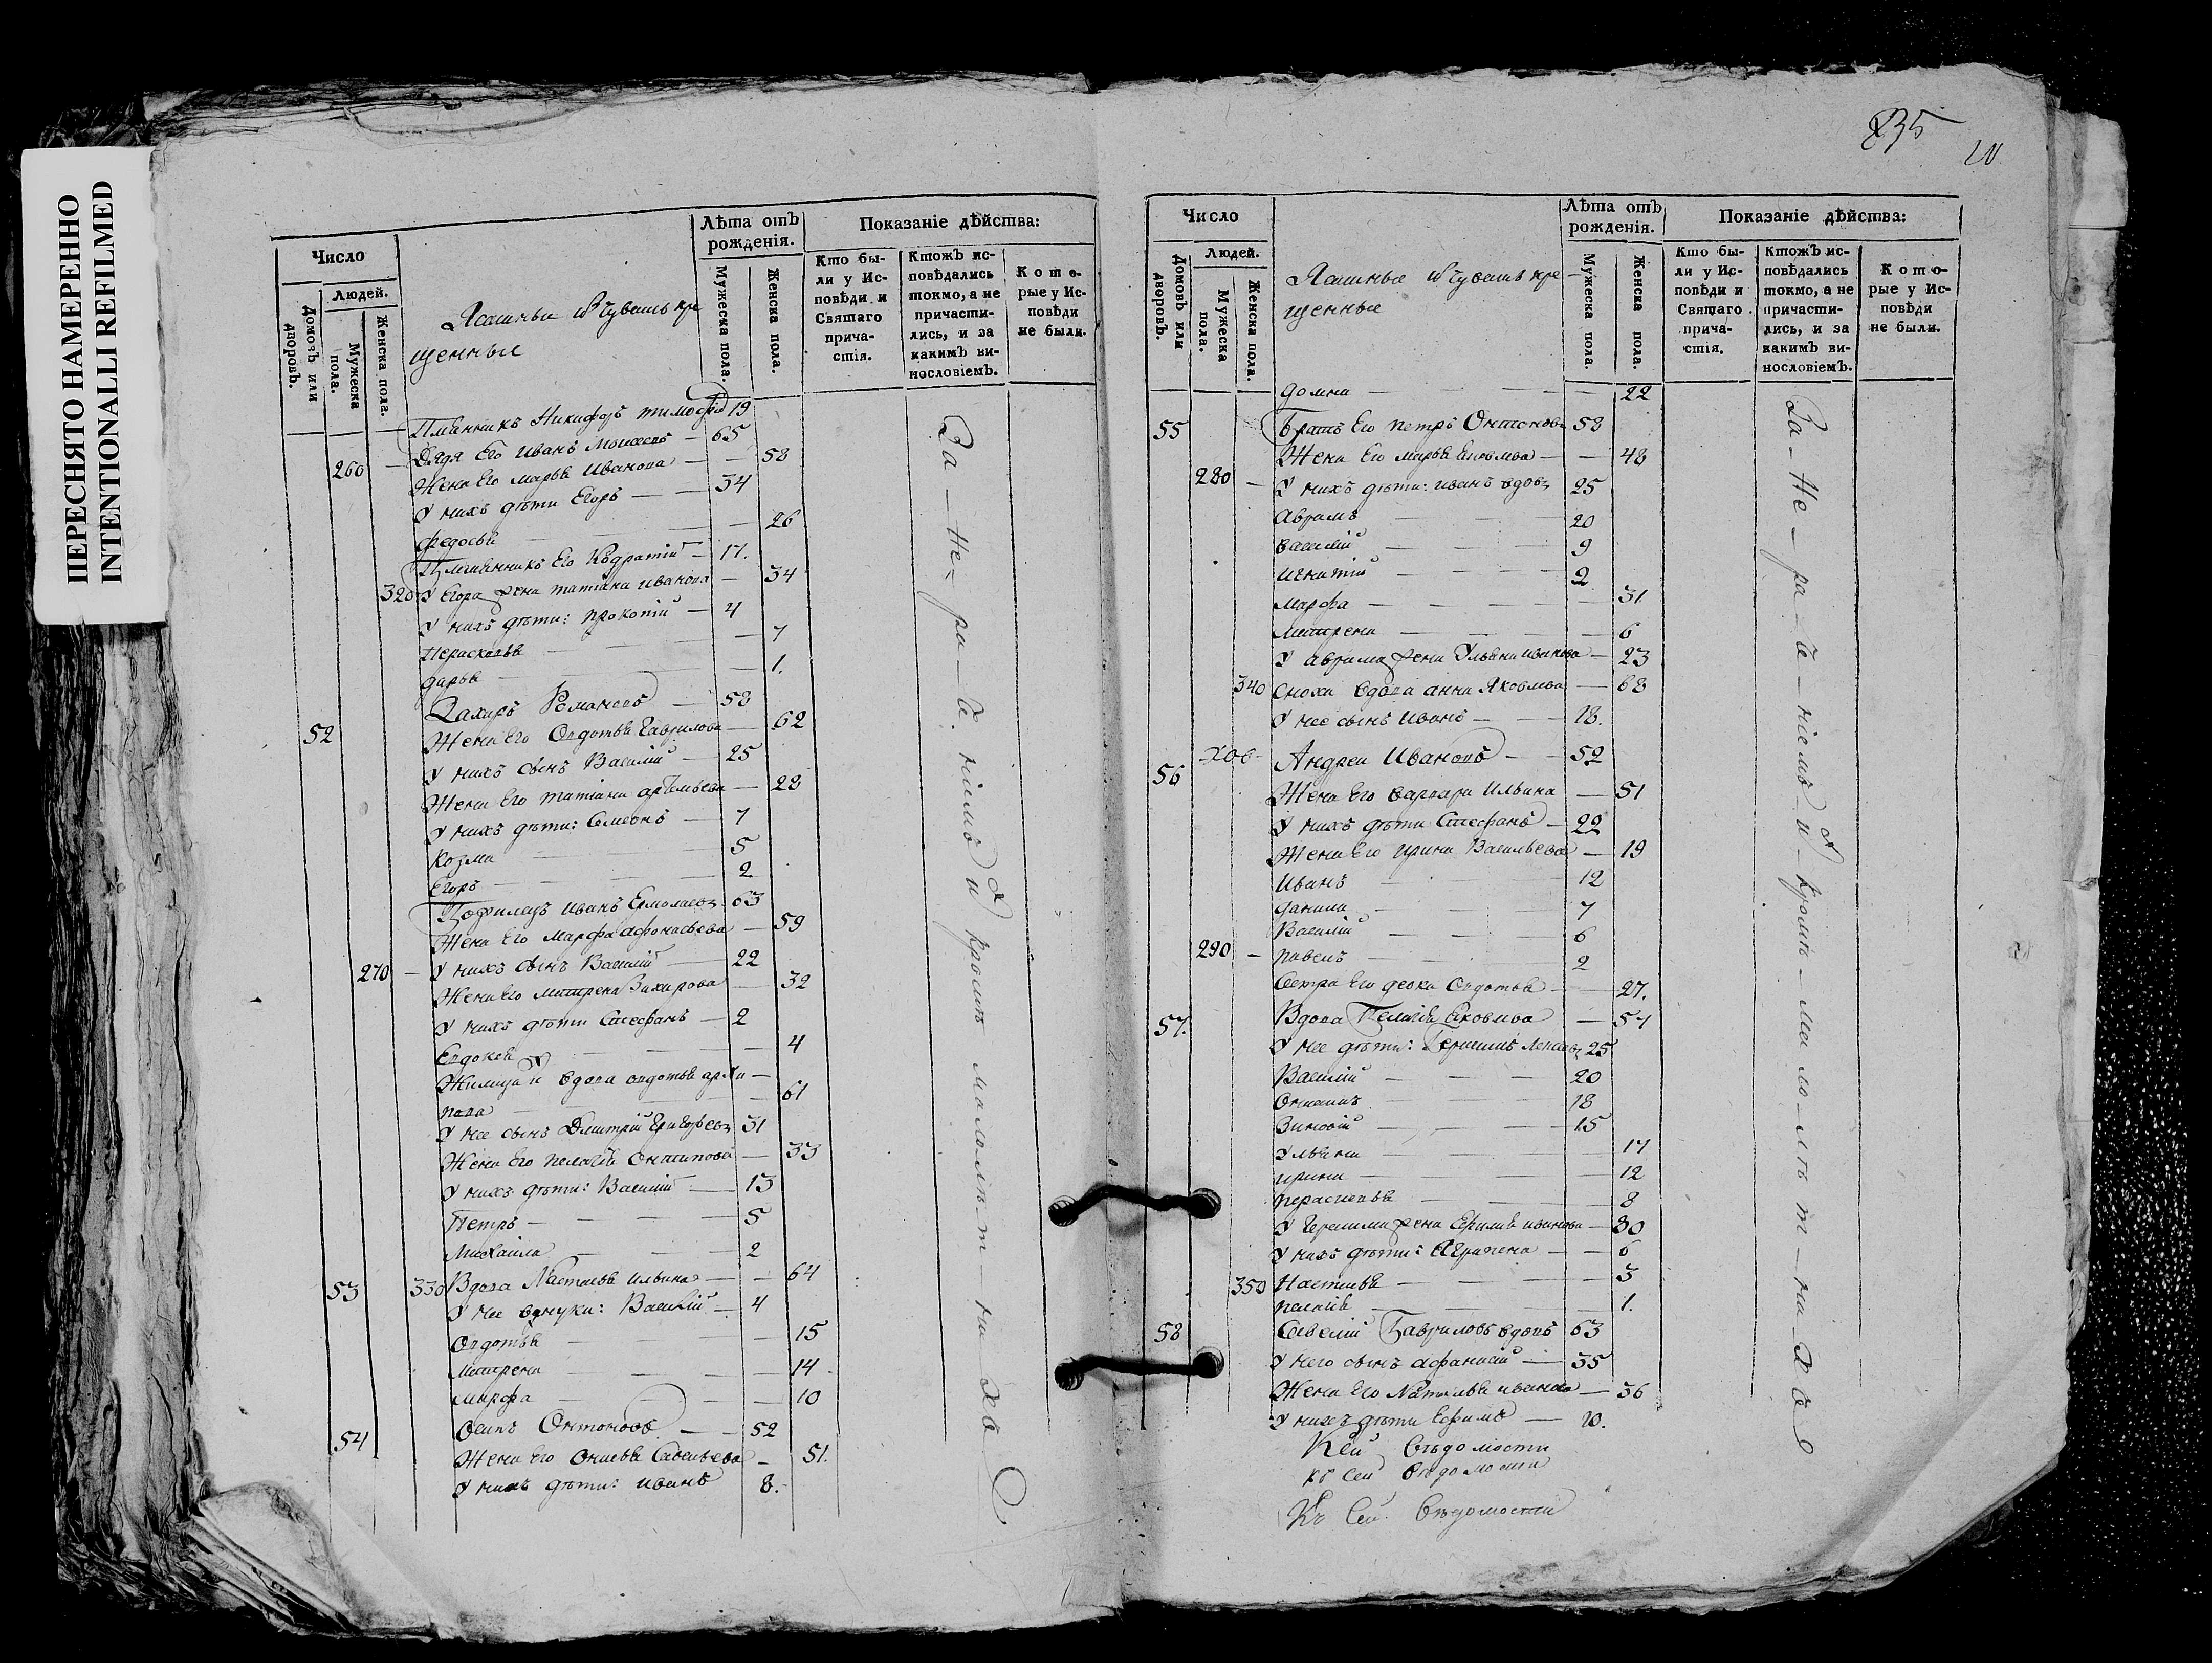 ПЕРЕСНЯТО НАМЕРЕННО
INTENTIONALLI REFILMED
Число
Людей.
Домовъ или дворовъ.
Мужеска пола.
Женска пола.
Ясашныи изъ Чувашъ кре
щенныи
Лѣта отъ рожденія.
Мужеска пола.
Женска пола.
Показаніе дѣйства:
Кто были у Исповѣди и Святаго причастія.
Ктожъ исповѣдались токмо, а не причастились, и за какимъ винословіемъ.
Которые у Исповѣди не были.
Никифоръ 19
260 Дядя Его Иванъ 65
Жена Его Марья Иванова 58
У нихъ дѣти Егоръ 34
Федосья 26
Его 17.
320 У Егора жена Татіана Иванова 34
У нихъ дѣти: Прокопій 4
7
Дарья 1.
52 Захаръ Романовъ 58
Жена Его Овдотья Гаврилова 62
У нихъ сынъ Василій 25
Жена Его Татіана 28
У нихъ дѣти: Семионъ 7
Козма 5
Егоръ 2
Иванъ 63
Жена Его Марфа Афонасьева 59
270 У нихъ сынъ Василій 22
Жена Его Матрена Захарова 32
У нихъ дѣти Стефанъ 2
4
вдова овдотья архи
пова 61
У нее сынъ Дмитрій 31
Жена Его Пелагѣя 33
У нихъ дѣти: Василій 13
Петръ 5
Михаила 2
53 330 Вдова Настасья Ильина 64
У нее внуки: Василій 4
Овдотья 15
Матрена 14
Марфа 10
54 Осипъ Онтоновъ 52
Жена Его Савельева 51.
У нихъ дѣти: Иванъ 8.
За нераченіемъ и кромѣ малолѣтнахъ
235
Число
Людей.
Домовъ или дворовъ.
Мужеска пола.
Женска пола.
Ясашные изъ Чувашъ кре
щенные
Лѣта отъ рожденія.
Мужеска пола.
Женска пола.
Показаніе дѣйства:
Кто были у Исповѣди и Святаго причастія.
Ктожъ исповѣдались токмо, а не причастились, и за какимъ винословіемъ.
Которые у Исповѣди не были.
Домна 22
55 Братъ Его Петръ Онтоновъ 58
Жена Его Марья 48
280 У нихъ дѣти: Иванъ вдовъ 25
Аврамъ 20
Василій 9
Игнатій 2
Марфа 31
Матрена 6
У Аврама жена Ульяна Иванова 23
340 Сноха вдова Анна Яковлева 68
У нее сынъ Иванъ 18.
56 Андреи Ивановъ 52
Жена Его Варвара Ильина 51
У нихъ дѣти Стефанъ 22
Жена Его Ирина Васильева 19
Иванъ 12
Данила 7
Василій 6
290 Павелъ 2
Сестра Его девка Овдотья 27.
57. Вдова Пелагѣя Яковлева 54
У нее дѣти: 25
Василій 20
18
Зиновій 15
Ульяна 17
Ирина 12
8
жена Иванова 30
У нихъ дѣти: Агрипена 6
350 Настасья 3
Пелагія 1.
58 Савелій Гавриловъ вдовъ 63
У него сынъ Афанасій 35
Жена Его Наталья Иванова 36
У нихъ дѣти Ефимъ 10.
Ксей Вѣдомости
къ сей вѣдомости
Къ Сей Вѣдомости
За нераченіемъ и кромѣ малолѣтнахъ